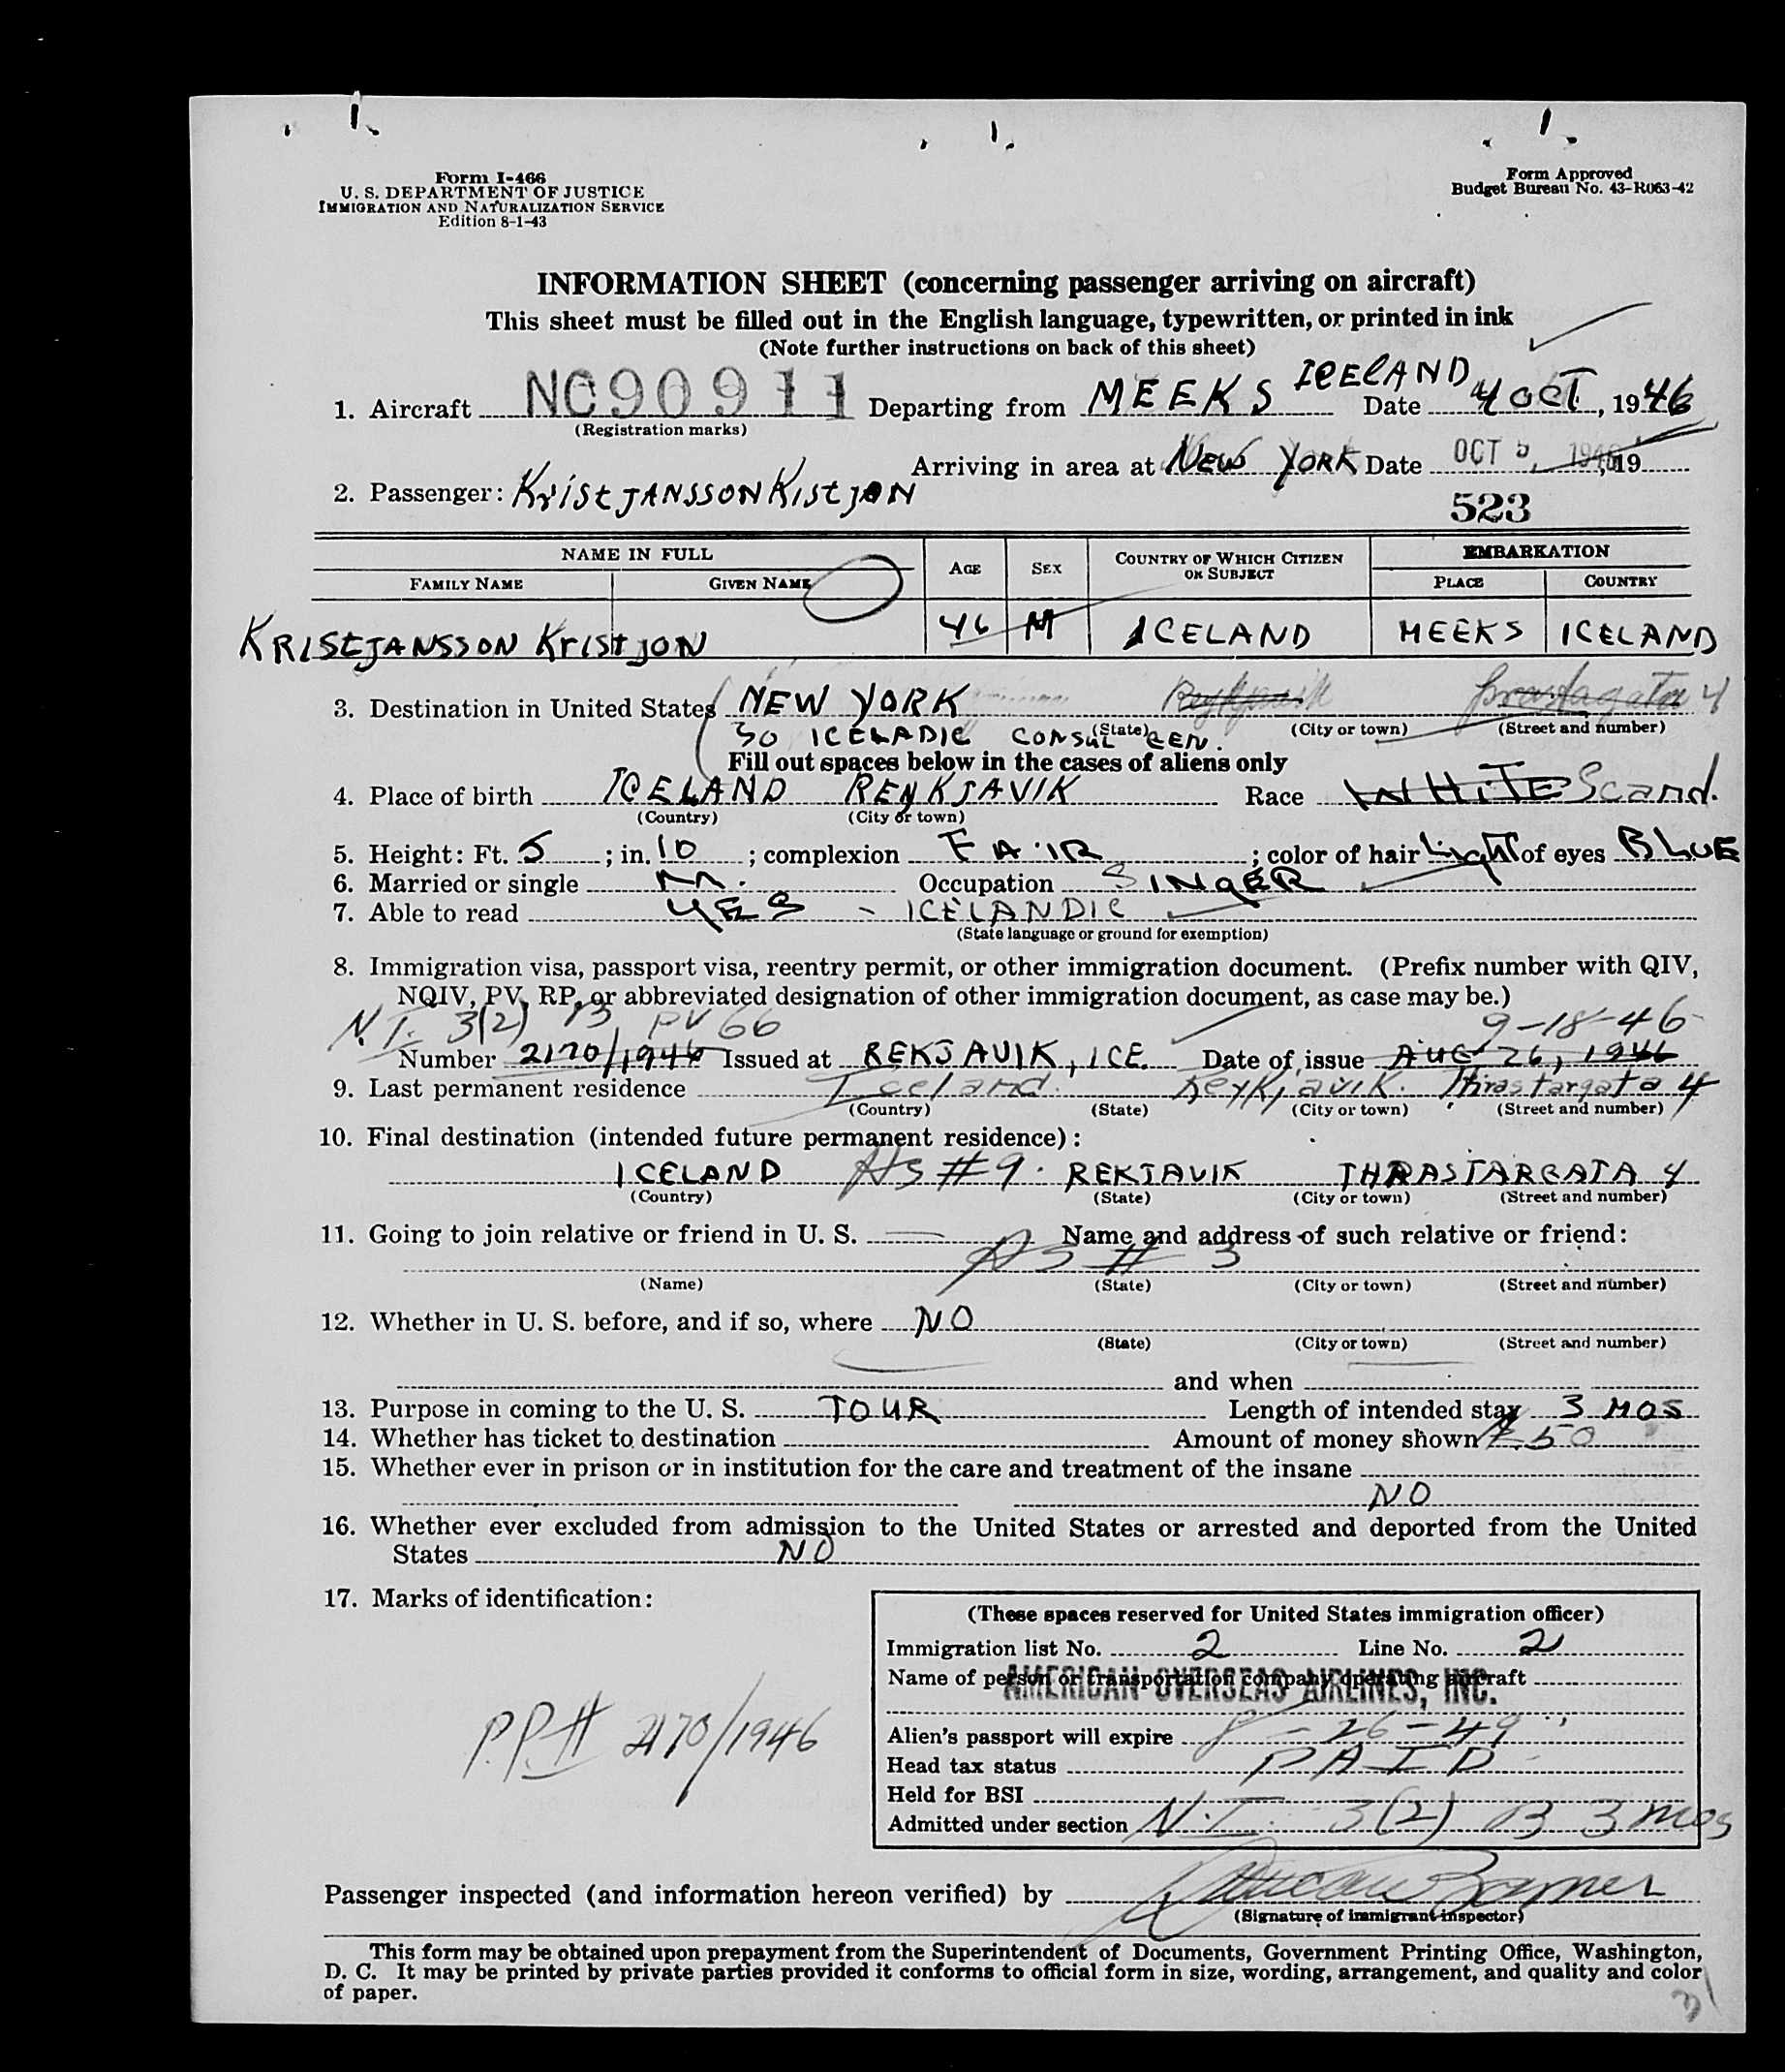 Form I-466
U. S. DEPARTMENT OF JUSTICE
IMMIGRATION AND NATURALIZATION SERVICE
Edition 8-1-43
Form Approved
Budget Bureau No. 43-R063-42
INFORMATION SHEET (concerning passenger arriving on aircraft)
This sheet must be filled out in the English language, typewritten, or printed in ink
(Note further instructions on back of this sheet)
1. Aircraft NC90911 Departing from MEEKS ICELAND Date 4 OCT, 1946
(Registration marks)
Arriving in area at NEW YORK Date OCT 5, 1946, 19
2. Passenger: KristJANSSON KistjON
523
NAME IN FULL AGE SEX COUNTRY OF WHICH CITIZEN OR SUBJECT EMBARKATION
FAMILY NAME GIVEN NAME PLACE COUNTRY
KRIStJANSSON KristJON 46 M ICELAND MEEKS ICELAND
3. Destination in United States NEW YORK Reykjavik 4
(State) (City or town) (Street and number)
ICELADIC CONSUL GEN.
Fill out spaces below in the cases of aliens only
4. Place of birth ICELAND REYKJAVIK Race WHITE Scand.
(Country) (City or town)
5. Height: Ft. 5; in. 10; complexion FAIR; color of hair Light of eyes BLUE
6. Married or single M. Occupation SINGER
7. Able to read YES - ICELANDIC
(State language or ground for exemption)
8. Immigration visa, passport visa, reentry permit, or other immigration document. (Prefix number with QIV,
NQIV, PV, RP, or abbreviated designation of other immigration document, as case may be.)
N.I. 3(2) B PV 66 9-18-46
Number 2170/1946 Issued at REKJAVIK, ICE. Date of issue AUG 26, 1946
9. Last permanent residence Iceland. Reykjavik. Thrastargata 4
(Country) (State) (City or town) (Street and number)
10. Final destination (intended future permanent residence):
ICELAND AS #9. REKJAVIK THRASTARGATA 4
(Country) (State) (City or town) (Street and number)
11. Going to join relative or friend in U. S. — Name and address of such relative or friend:
AS # 3
(Name) (State) (City or town) (Street and number)
12. Whether in U. S. before, and if so, where NO
(State) (City or town) (Street and number)
and when
13. Purpose in coming to the U. S. TOUR Length of intended stay 3 MOS
14. Whether has ticket to destination Amount of money shown 50
15. Whether ever in prison or in institution for the care and treatment of the insane
NO
16. Whether ever excluded from admission to the United States or arrested and deported from the United
States NO
17. Marks of identification:
P.P.# 2170/1946
(These spaces reserved for United States immigration officer)
Immigration list No. 2 Line No. 2
Name of person or transportation company operating aircraft
AMERICAN OVERSEAS AIRLINES, INC.
Alien's passport will expire 8-26-49
Head tax status PAID
Held for BSI
Admitted under section N.I. 3(2) B 3 mos
Passenger inspected (and information hereon verified) by
(Signature of immigrant inspector)
This form may be obtained upon prepayment from the Superintendent of Documents, Government Printing Office, Washington,
D. C. It may be printed by private parties provided it conforms to official form in size, wording, arrangement, and quality and color
of paper.